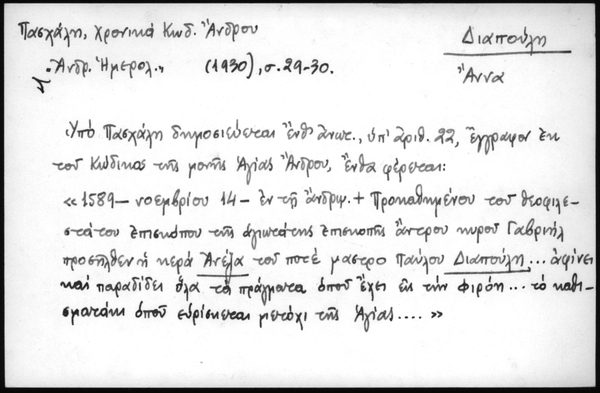 Πασχάλη, Χρονικά Κώδ. Ἄνδρου
Διαπούλη
"Ἀνδρ. Ἡμερολ.", (1930), σ. 29-30.
Ἄννα
Ὑπό Πασχάλη δημοσιεύεται ἔνθ' ἀνωτ., ὑπ' ἀριθ. 22, ἔγγραφον ἐκ
τοῦ Κώδικος τῆς μονῆς Ἁγίας Ἄνδρου, ἔνθα φέρεται:
« 1589 – νοεμβρίου 14 – ἐν τῇ ἄνδρῳ. + Προκαθημένου τοῦ θεοφιλε-
στάτου ἐπισκόπου τῆς ἁγιωτάτης ἐπισκοπῆς ἄντρου κυροῦ Γαβριήλ
προσῆλθεν ἡ κερά Ἀνέζα τοῦ ποτέ μαστρο Παύλου Διαπούλη ... ἀφίνει
καί παραδίδει ὅλα τά πράγματα ὁποῦ ἔχει εἰς τήν Φιρόη ... τό καθι-
σματάκι ὁποῦ εὑρίσκεται μετόχι τῆς Ἁγίας .... »